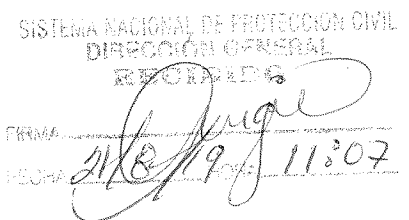 SISTEMA NACIONAL DE PROTECCIÓN CIVIL
DIRECCIÓN GENERAL
RECIBIDO
FIRMA
FECHA 21/8/19 HORA 11:07